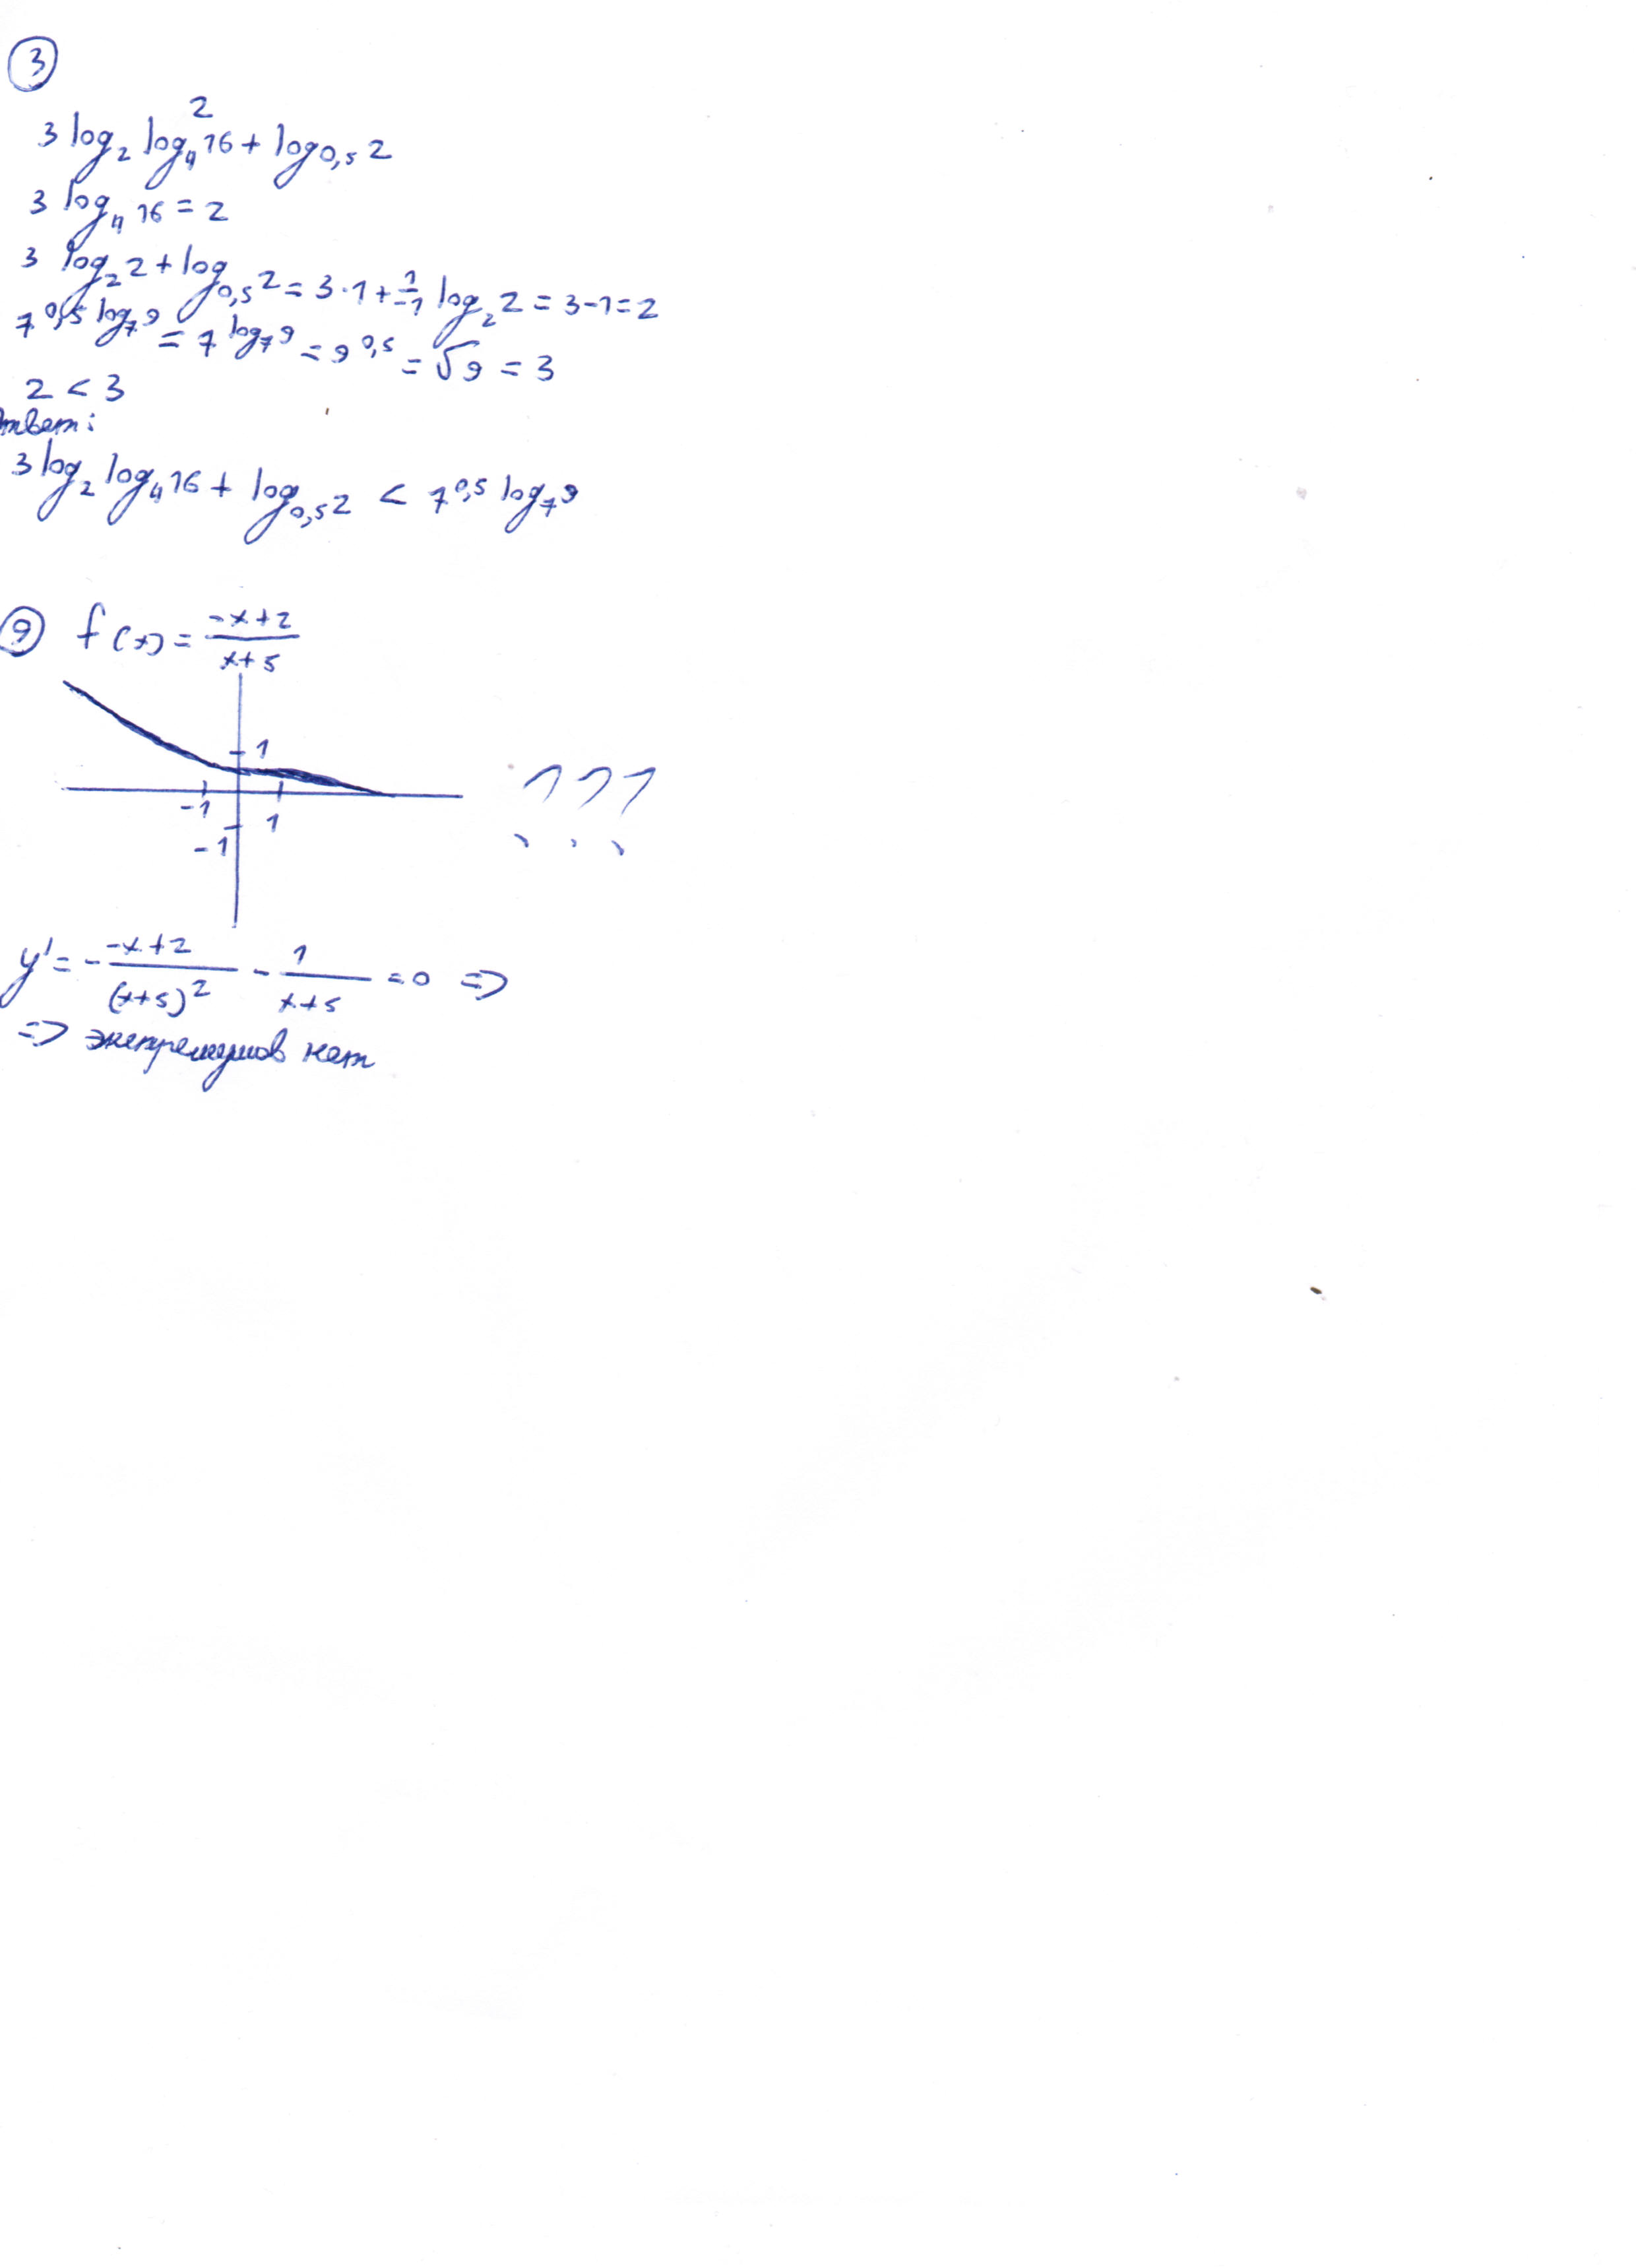 3
3 log₂ log₄² 16 + log₀,₅ 2
3 log₄ 16 = 2
3 log₂ 2 + log₀,₅ 2 = 3·1 + 1/-1 log₂ 2 = 3-1=2
7^0,5 log₇ 9 = 7^log₇ 9 = 9^0,5 = √9 = 3
2 < 3
твет:
3 log₂ log₄ 16 + log₀,₅ 2 < 7^0,5 log₇ 9
9 f(x) = (-x+2)/(x+5)
1
-1
1
-1
???
y' = - (-x+2)/(x+5)² - 1/(x+5) = 0 =>
=> экстремумов нет